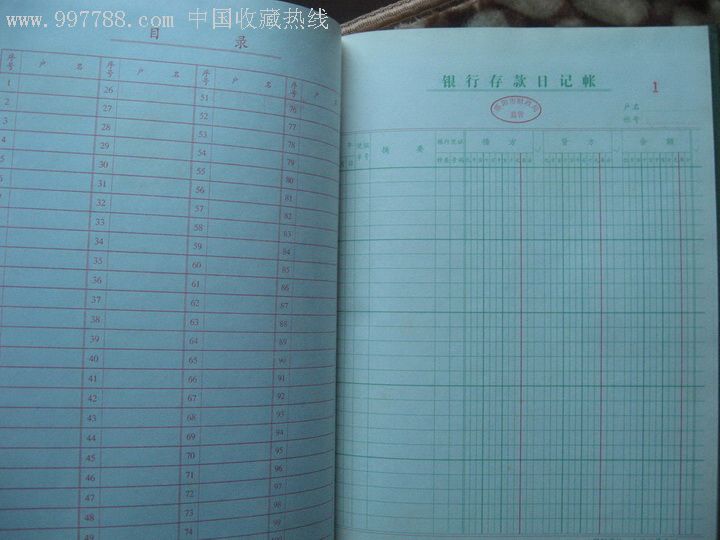 www.997788.com 中国收藏热线
目 录
序号 户 名 序号 户 名 序号 户 名 序号 户 名
1 26 51 76
2 27 52 77
3 28 53 78
4 29 54 79
5 30 55 80
6 31 56 81
7 32 57 82
33 58 83
34 59 84
35 60 85
36 61 86
37 62 87
38 63 88
39 64 89
40 65 90
41 66 91
42 67 92
43 68 93
44 69 94
45 70 95
46 71 96
47 72 97
48 73 98
49 74 99
银行存款日记帐
1
市财政局
监管
户名
帐号
摘 要 借 方 贷 方 余 额